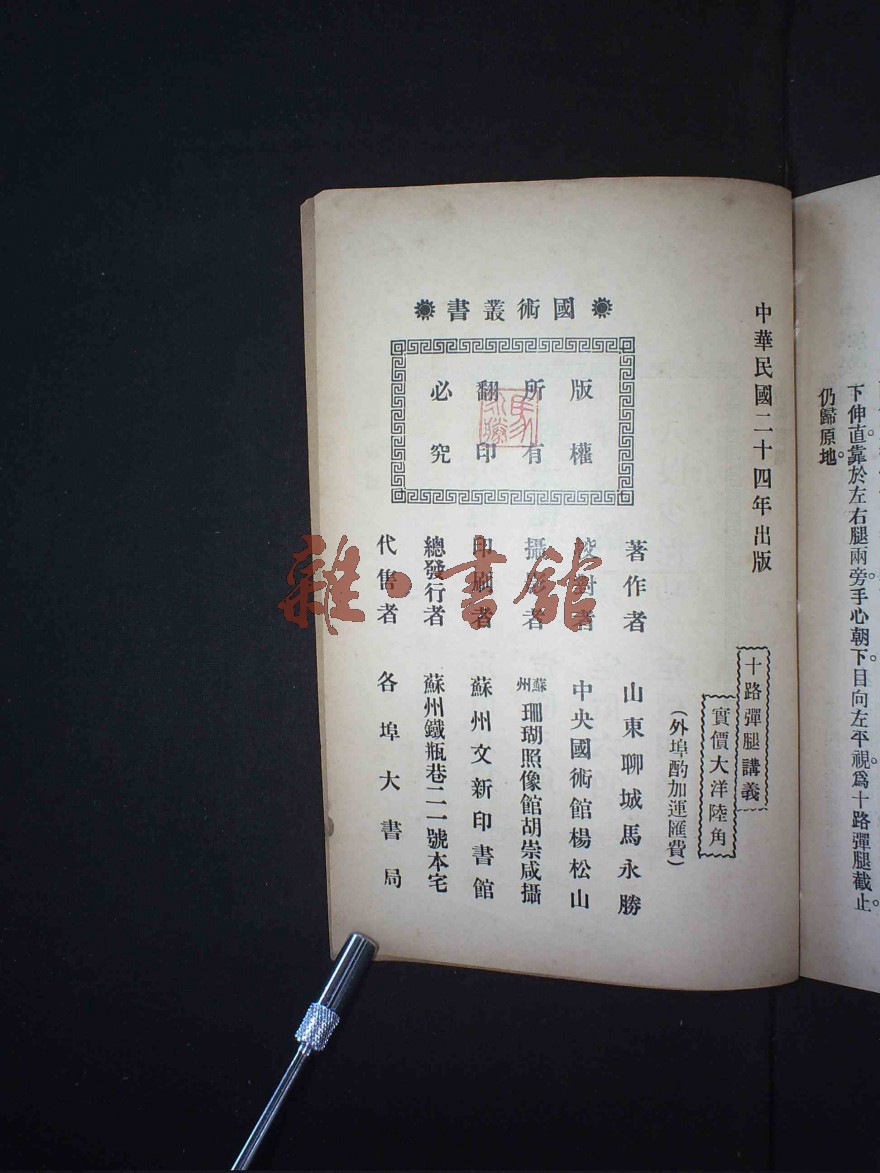 下伸直靠於左右腿兩旁。手心朝下。目向左平視。爲十路彈腿截止。
仍歸原地。
中華民國二十四年出版
十路彈腿講義
實價大洋陸角
(外埠酌加運匯費)
國術叢書
版權
所有
翻印
必究
馬永勝
著作者 山東聊城馬永勝
校對者 中央國術館楊松山
攝影者 蘇州珊瑚照像館胡崇咸攝
印刷者 蘇州文新印書館
總發行者 蘇州鐵瓶巷二一號本宅
代售者 各埠大書局
雜·書館